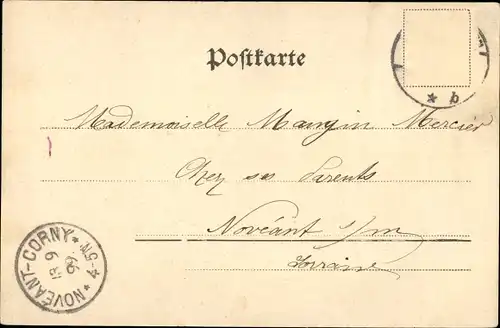 Postkarte
* b
Mademoiselle Mangin Mercier
Chez ses Parents
Novéant s/m
Lorraine
NOVÉANT-CORNY * 4-5N *